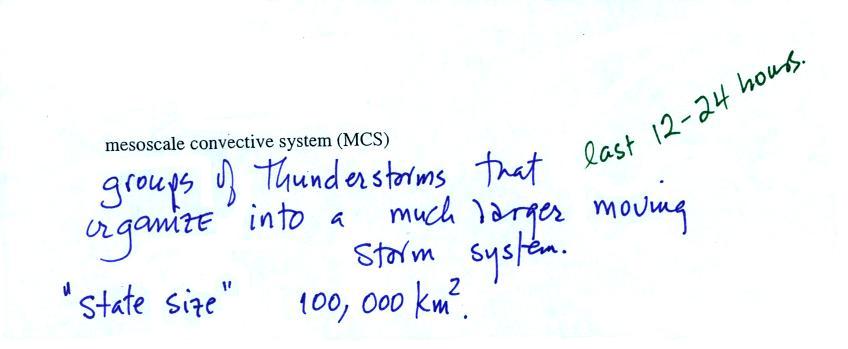 mesoscale convective system (MCS)
last 12-24 hours.
groups of Thunderstorms that
organize into a much larger moving
storm system.
"state size" 100,000 km².